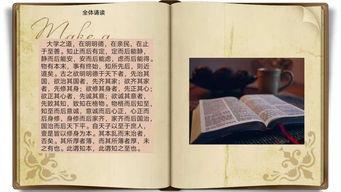 全体诵读
Make a
大学之道，在明明德，在亲民，在止
于至善，知止而后有定，定而后能静，
静而后能安，安而后能虑，虑而后能得。
物有本末，事有终始，知所先后，则近
道矣。古之欲明明德于天下者，先治其
国，欲治其国者，先齐其家；欲齐其家
者，先修其身；欲修其身者，先正其心；
欲正其心者，先诚其意；欲诚其意者，
先致其知，致知在格物。物格而后知至，
知至而后意诚，意诚而后心正，心正而
后身修，身修而后家齐，家齐而后国治，
国治而后天下平。自天子以至于庶人，
壹是皆以修身为本。其本乱而末治者，
否矣。其所厚者薄，而其所薄者厚，未
之有也。此谓知本，此谓知之至也。